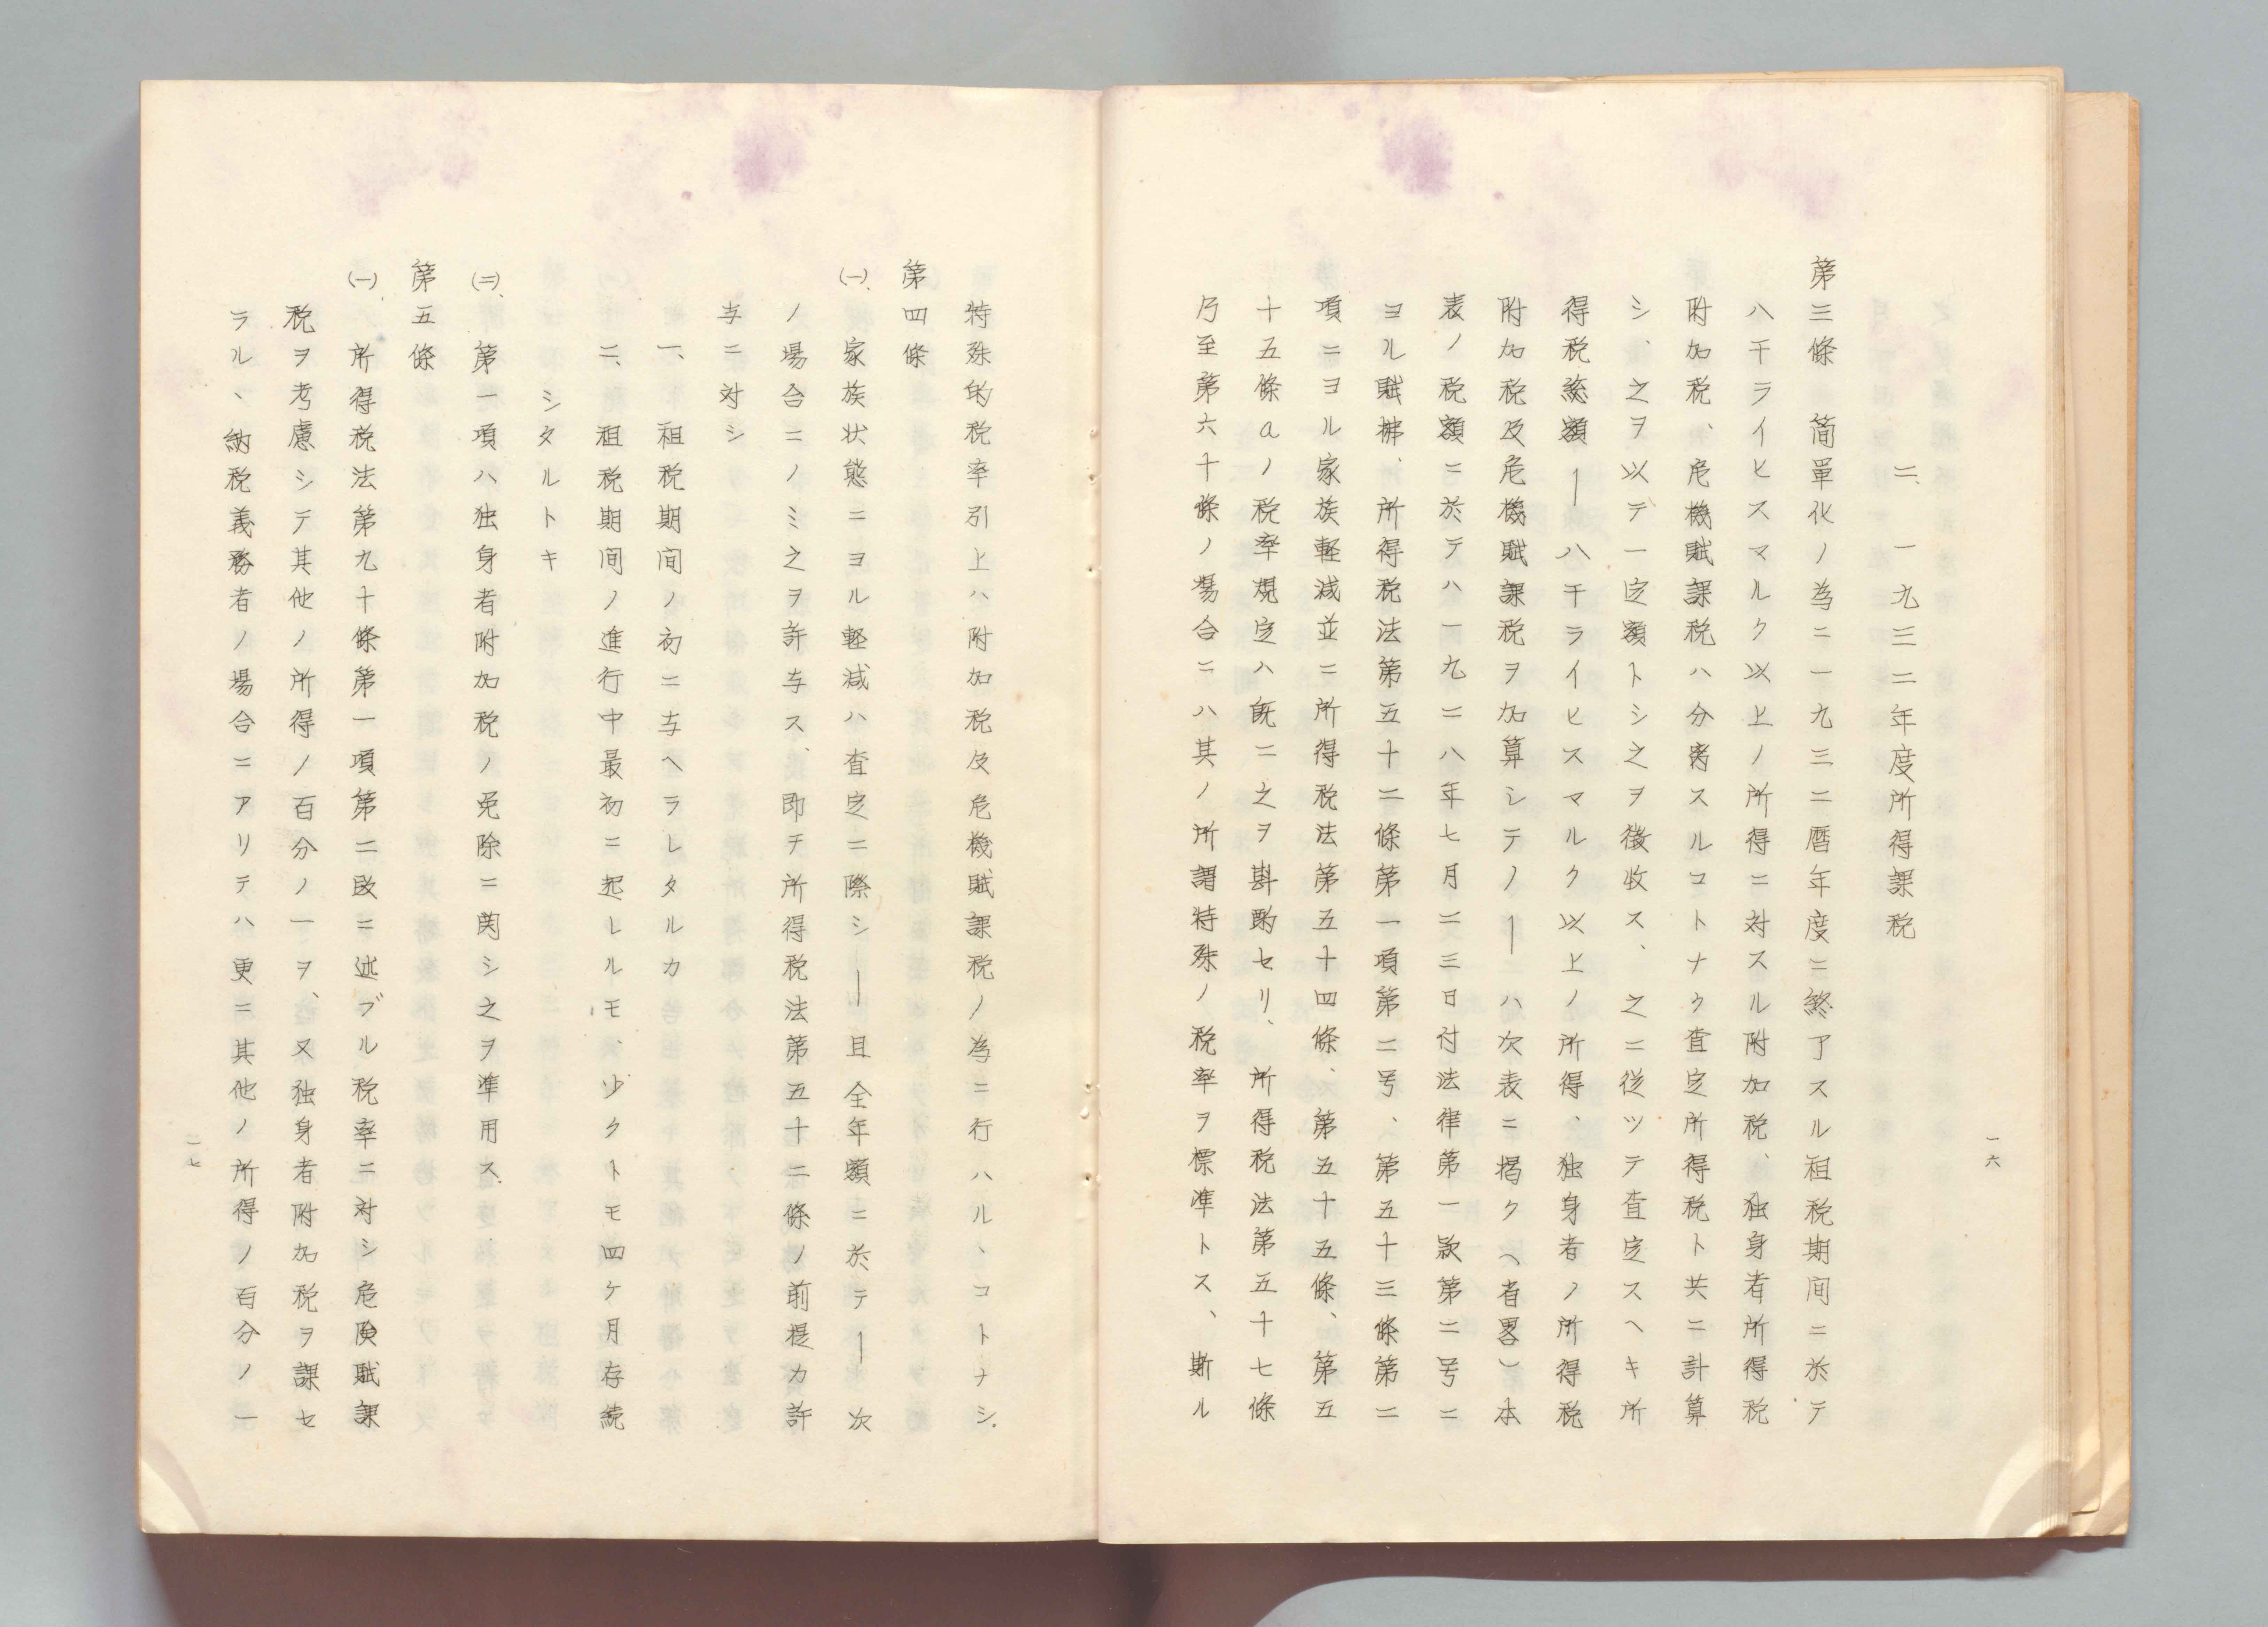 一六
二、一九三二年度所得課税
第三條　简單化ノ為ニ一九三二暦年度ニ終了スル租税期间ニ於テ
八千ライヒスマルク以上ノ所得ニ対スル附加税、独身者所得税
附加税、危機賦課税ハ分离スルコトナク査定所得税ト共ニ計算
シ、之ヲ以テ一定額トシ之ヲ徴收ス、之ニ従ツテ査定スヘキ所
得税総額—八千ライヒスマルク以上ノ所得、独身者ノ所得税
附加税及危機賦課税ヲ加算シテノ—ハ次表ニ掲ク（省畧）本
表ノ税額ニ於テハ一九二八年七月二三日付法律第一款第二号ニ
ヨル賦拂、所得税法第五十二條第一項第二号、第五十三條第二
項ニヨル家族軽減並ニ所得税法第五十四條、第五十五條、第五
十五條aノ税率規定ハ既ニ之ヲ斟酌セリ、所得税法第五十七條
乃至第六十條ノ場合ニハ其ノ所謂特殊ノ税率ヲ標準トス、斯ル
特殊的税率引上ハ附加税及危機賦課税ノ為ニ行ハルヽコトナシ、
第四條
㈠、家族状態ニヨル軽減ハ査定ニ際シ—且全年額ニ於テ—次
ノ場合ニノミ之ヲ許与ス、即チ所得税法第五十二條ノ前提カ許
与ニ対シ
一、租税期间ノ初ニ与ヘラレタルカ
二、租税期间ノ進行中最初ニ起レルモ、少クトモ四ケ月存続
シタルトキ
㈡、第一項ハ独身者附加税ノ免除ニ関シ之ヲ準用ス、
第五條
㈠、所得税法第九十條第一項第二段ニ述ブル税率ニ対シ危険賦課
税ヲ考慮シテ其他ノ所得ノ百分ノ一ヲ、又独身者附加税ヲ課セ
ラルヽ納税義務者ノ場合ニアリテハ更ニ其他ノ所得ノ百分ノ一
一七